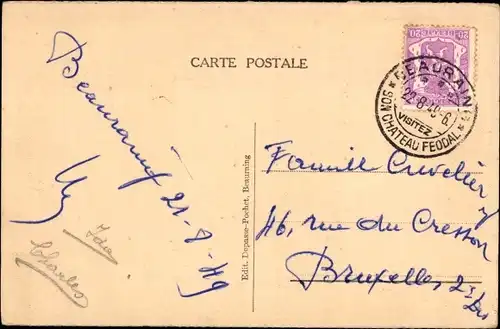 CARTE POSTALE
BEAURAING
VISITEZ
SON CHATEAU FEODAL
Beauraing
21-8-49
Ida
Charles
Edit. Depasse-Pochet, Beauraing
Famille Cuvelier
46, rue du Cresson
Bruxelles